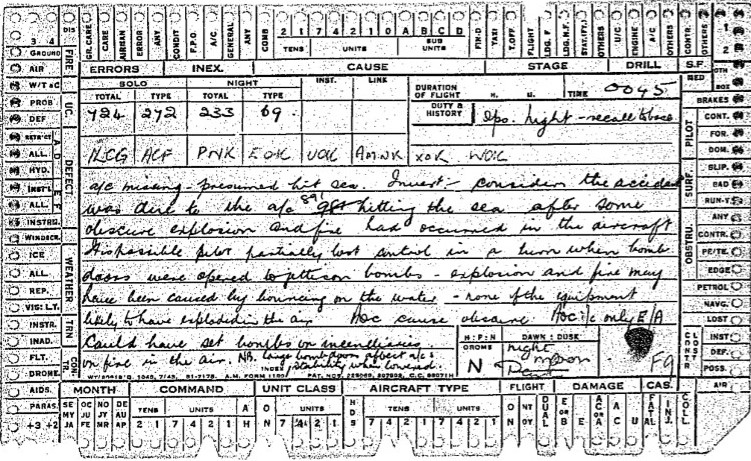 DIS GR.CARE CARE AIRMAN ERROR ANY CONDIT F.P.O. A/C. GENERAL ANY COMB 2 1 7 4 2 1 0 A B C D FIN-D TAXI T.OFF. FLIGHT LDG. F. LDG. N.F. STAT(FLY) OTHERS U/C ENGINE A/C OTHERS CONTR. OTHERS
TENS UNITS SUB UNITS
3 4 FIRE ERRORS INEX. CAUSE STAGE DRILL S.F. 1 2
GROUND
AIR
W/T & C
PROB
DEF
U/C
SOLO NIGHT INST. LINK
TOTAL TYPE TOTAL TYPE
724 272 233 69
DURATION OF FLIGHT H. M. TIME 0045
DUTY & HISTORY Ops. night - recall to base
MED BOX
BRAKES
CONT.
FOR.
DOM.
PILOT
ALL.
HYD.
INSTR.
ALL.
INSTRU.
WINDSCR.
ICE
ALL.
REP.
VIS: L.T.
INSTR.
INAD.
FLT.
DROME.
AIDS.
PARAS.
DEFECT
WEATHER
TRN.
CON. TR.
ACF PNK EOK UOK AMNK XOK WOK
a/c missing - presumed hit sea. Invest:- consider the accident
was due to the a/c 891 hitting the sea after some
obscure explosion and fire had occurred in the aircraft
It is possible pilot partially lost control in a turn when bomb
doors were opened to jettison bombs - explosion and fire may
have been caused by bouncing on the water - none of the equipment
likely to have exploded in the air. AOC cause obscure. AOC i/c only E/A
Could have set bombs or incendiaries
on fire in the air. NB. large bomb doors affect a/c's
stability when lowered.
INDEX
SURF.
SLIP.
BAD
RUN-Y.
ANY
OBSTRU.
CONTR.
PE/TE.
EDGE
PETROL
NAVG.
LOST
INST
DEF.
POSS.
AIR
CLOST CONTR
H : F : N DAWN : DUSK
DROME night
N moon
Dark
F9
A.M. FORM 1180
MONTH COMMAND UNIT CLASS AIRCRAFT TYPE FLIGHT DAMAGE CAS.
SE OC NO DE TENS UNITS A O H TENS UNITS O NT DUAL E or B E A or A A C U FATAL INJ. COLL.
MY JU FE JY NR AU AP 2 1 7 4 2 1 H N 7 4 2 1 D S 7 4 2 1 7 4 2 1 N OY
+3 +2 JA